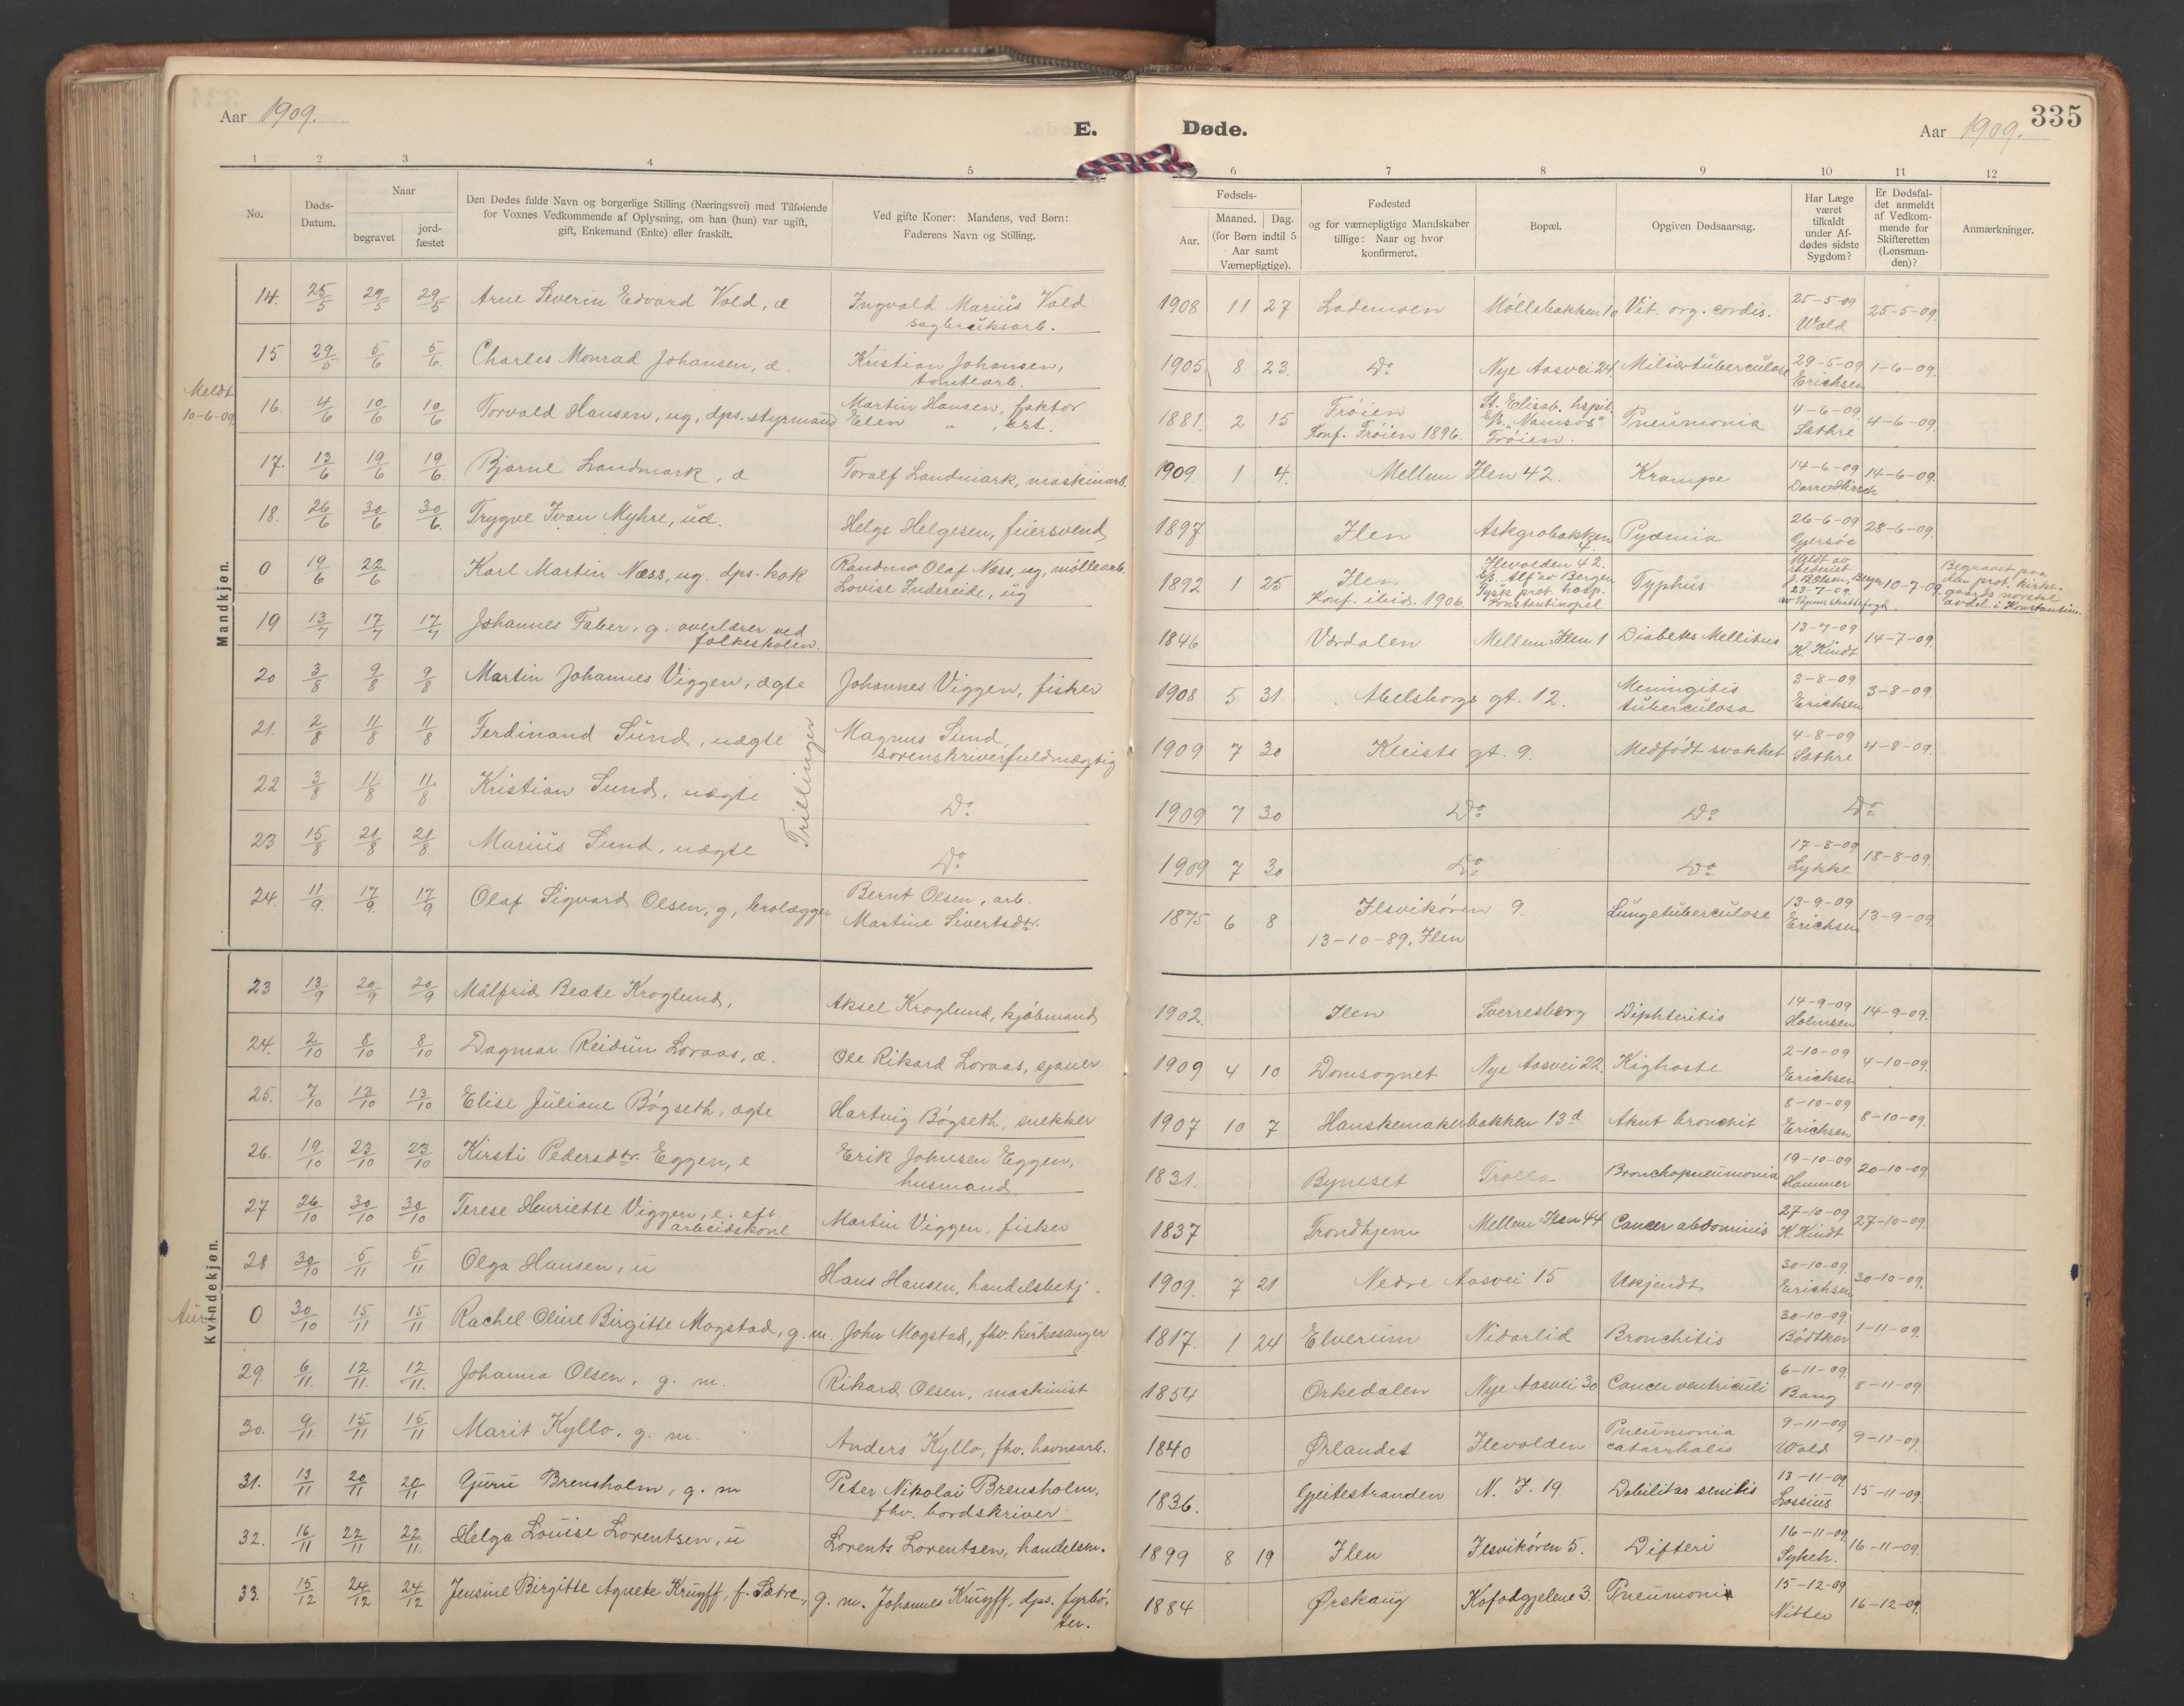 335
Aar 1909.
E.
Døde.
Aar 1909.
1 2 3 4 5 6 7 8 9 10 11 12
No.
Døds-
Datum.
Naar
begravet
jord-
fæstet
Den Dødes fulde Navn og borgerlige Stilling (Næringsvei) med Tilføiende
for Voxnes Vedkommende af Oplysning, om han (hun) var ugift,
gift, Enkemand (Enke) eller fraskilt.
Ved gifte Koner: Mandens, ved Børn:
Faderens Navn og Stilling.
Fødsels-
Aar.
Maaned. Dag.
(for Børn indtil 5
Aar samt
Værnepligtige).
Fødested
og for værnepligtige Mandskaber
tillige: Naar og hvor
konfirmeret.
Bopæl.
Opgiven Dødsaarsag.
Har Læge
været
tilkaldt
under Af-
dødes sidste
Sygdom?
Er Dødsfal-
det anmeldt
af Vedkom-
mende for
Skifteretten
(Lensman-
den)?
Anmærkninger.
Mandkjøn.
14. 25/5 29/5 29/5 Arne Severin Edvard Vold, æ Ingvald Marius Vold 1908 11 27 Lademoen Møllebakken 10 Vit. org. cordis. 25-5-09 25-5-09.
sagbruksarb. Wold
15 29/5 5/6 5/6. Charles Monrad Johansen, æ. Kristian Johansen, 1905 8 23. Do Nye Aasvei 24 Miliærtuberculose 29-5-09 1-6-09.
tomtearb. Erichsen
Meldt
10-6-09
16. 4/6 10/6 10/6 Torvald Hansen, ug, dps. styrmand Martin Hansen, faktor 1881. 2 15 Frøien St. Elisab. hspit. Pneumonia 4-6-09. 4-6-09.
Elen " , ært. Konf. Frøien 1896. E/S "Namsos" Sæthre
Frøien.
17. 13/6 19/6 19/6. Bjarne Landmark, æ Toralf Landmark, maskinarb. 1909. 1 4. Mellem Ilen 42. Krampe 14-6-09 14-6-09.
18. 26/6 30/6 30/6. Trygve Ivan Myhre, uæ. Helge Helgesen, feiersvend 1897 Ilen Askgrobakken 4. Pyæmia 26-6-09 28-6-09.
Gjersøe
0 19/6 22/6 Karl Martin Næss, ug. dps. kok Randmo Olaf Næss, ug, møllearb. 1892 1 25 Ilen Ilevolden 42. Typhus 10-7-09.
Lovise Indereide, ug Konf. ibid. 1906. E/S. Alf av Bergen
Tysk prot. hosp.
Konstantinopel
23-7-09.
Begravet paa
den prot. kirke-
gaards norske
avdel. i Konstantin.
19 13/7 17/7 17/7 Johannes Faber, g. overlærer ved 1846 Værdalen Mellem Ilen 1 Diabetes Mellitus 13-7-09 14-7-09.
folkeskolen. K. Kindt
20 3/8 9/8 9/8 Martin Johannes Viggen, ægte Johannes Viggen, fisker 1908 5 31. Abelsborgs gt. 12. Meningitis 3-8-09 3-8-09.
tuberculosa Erichsen
Trillinger
21. 2/8 11/8 11/8 Ferdinand Sund, uægte Magnus Sund 1909 7 30 Kleists gt. 9. Medfødt svakhet 4-8-09 4-8-09.
sorenskriverfuldmægtig Sæthre
22 3/8 11/8 11/8 Kristian Sund, uægte Do 1909 7 30 Do Do Do
23 15/8 21/8 21/8 Marius Sund, uægte Do 1909 7 30 Do Do 17-8-09 18-8-09.
Lykke
24. 11/9. 17/9. 17/9 Olaf Sigvard Olsen, g, brolægger Bernt Olsen, arb. 1875 6 8 Ilsvikøren 9. Lungetuberculose 13-9-09 13-9-09.
Martine Sivertsdtr. 13-10-89. Ilen Erichsen
Kvindekjøn.
23 13/9 20/9 20/9 Målfrid Beate Kroglund, Aksel Kroglund, kjøbmand 1902. Ilen Sverresborg Diphteritis 14-9-09 14-9-09.
Holmsen
24. 2/10 8/10 8/10 Dagmar Reidun Loraas, æ. Ole Rikard Loraas, sjauer 1909 4 10 Domsognet Nye Aasvei 22. Kighoste 2-10-09 4-10-09.
Erichsen
25. 7/10 13/10 13/10 Elise Juliane Bøgseth, ægte Hartvig Bøgseth, snekker 1907 10 7 Hanskemakerbakken 13d Akut bronchit 8-10-09 8-10-09.
Erichsen
26. 19/10 23/10 23/10 Kirsti Pedersdtr. Eggen, e Erik Johnsen Eggen, 1831. Byneset Trolla Bronchopneumonia 19-10-09 20-10-09.
husmand. Hammer
27 26/10 30/10 30/10 Terese Henriette Viggen, e. eft. Martin Viggen, fisker 1837 Trondhjem Mellem Ilen 44 Cancer abdominis 27-10-09 27-10-09.
arbeidskone K. Kindt
28 30/10 5/11 5/11 Olga Hansen, u Hans Hansen, handelsbetj. 1909. 7 21 Nedre Aasvei 15 Ukjendt 30-10-09. 30-10-09.
Erichsen
0 30/10 15/11 15/11 Rachel Oline Birgitte Mogstad, g. m. John Mogstad, fhv. kirkesanger 1817. 1 24 Elverum Nidarlid Bronchitis 30-10-09. 1-11-09.
Bødtker
29. 6/11. 12/11. 12/11. Johanna Olsen, g. m. Rikard Olsen, maskinist 1854 Orkedalen Nye Aasvei 30 Cancer ventriculi 6-11-09. 8-11-09.
Bang
30. 9/11. 15/11 15/11 Marit Kyllo, g. m. Anders Kyllo, fhv. havnearb. 1840 Ørlandet Ilevolden Pneumonia 9-11-09 9-11-09.
catarrhalis Wold
31. 13/11 20/11 20/11 Guru Brensholm, g. m Peter Nikolai Brensholm, 1836. Geitestranden N. I. 19. Debilitas senilis 13-11-09. 15-11-09.
fhv. bordskriver Lossius
32. 16/11 22/11 22/11. Helga Louise Lorentsen, u Lorents Lorentsen, handelsm. 1899 8 19 Ilen Ilsvikøren 5. Difteri 16-11-09. 16-11-09.
Sykeh.
33. 15/12 24/12 24/12 Jensine Birgitte Agnete Krüyff, f. Sætre, g. m. Johannes Krüyff, dps. fyrbø- 1884 Ørskaug Kofodgjelene 3. Pneumoni 15-12-09 16-12-09.
ter. Nitter